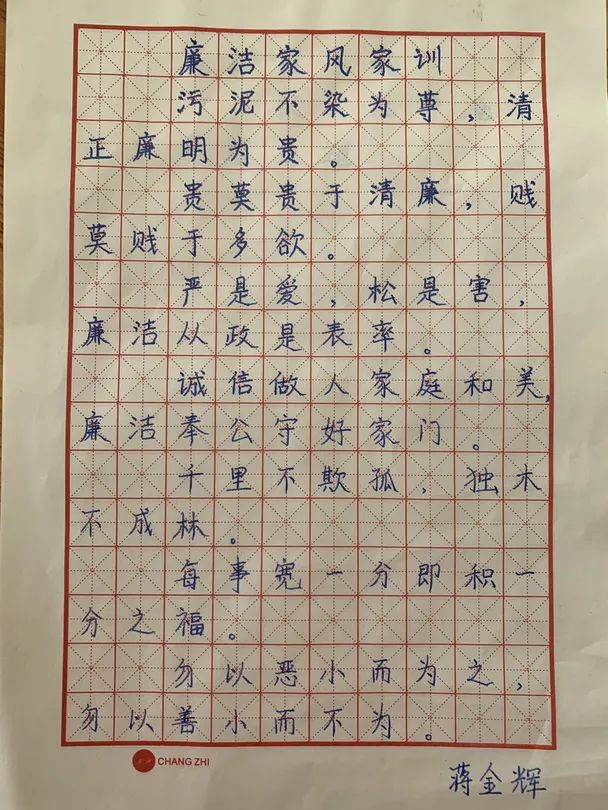 廉洁家风家训
污泥不染为尊,清
正廉明为贵。
贵莫贵于清廉,贱
莫贱于多欲。
严是爱,松是害,
廉洁从政是表率。
诚信做人家庭和美,
廉洁奉公守好家门。
千里不欺孤,独木
不成林。
每事宽一分即积一
分之福。
勿以恶小而为之,
勿以善小而不为。
CHANG ZHI
蒋金辉